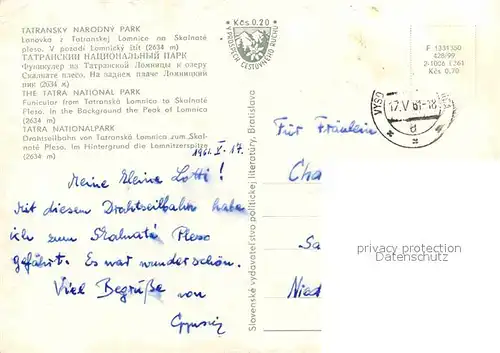 TATRANSKÝ NÁRODNÝ PARK
Lanovka z Tatranskej Lomnice na Skalnaté
pleso. V pozadí Lomnický štít (2634 m)
ТАТРАНСКИЙ НАЦИОНАЛЬНЫЙ ПАРК
Фуникулер из Татранской Ломницы к озеру
Скалнате плесо. На заднем плане Ломницкий
пик (2634 m)
THE TATRA NATIONAL PARK
Funicular from Tatranská Lomnica to Skalnaté
Pleso. In the Background the Peak of Lomnica
(2634 m)
TATRA NATIONALPARK
Drahtseilbahn von Tatranská Lomnica zum Skal-
naté Pleso. Im Hintergrund die Lomnitzerspitze
(2634 m)
Kčs 0.20
V PROSPECH CESTOVNÉHO RUCHU
F 1331350
428/99
Kčs 0,70
17.V 61-18
1961. V. 17.
Meine kleine Lotti!
Mit diesem Drahtseilbahn habe
ich zum Skalnaté Pleso
gefährt. Es war wunderschön.
Viel Begrüße von
Slovenské vydavateľstvo politickej literatúry, Bratislava
Für Fräulein
Cha
Sa
Nied
privacy protection
Datenschutz